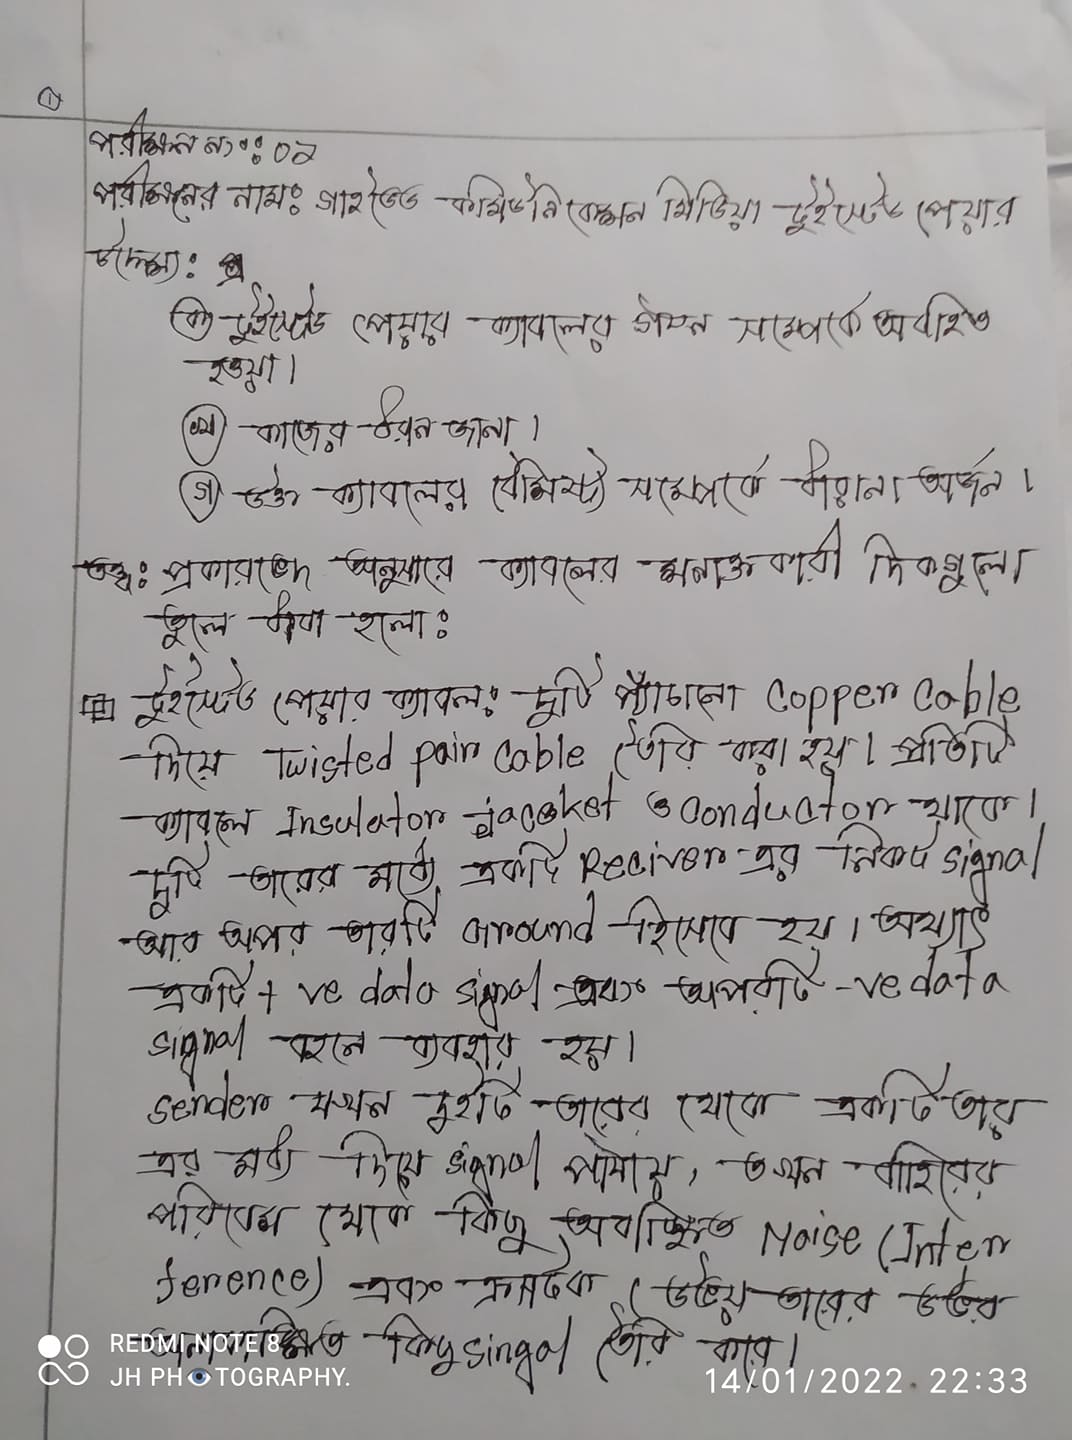 ১
পরীক্ষন নং: ০২
পরীক্ষনের নাম: গাইডেড কমিউনিকেশন মিডিয়া টুইস্টেড পেয়ার
উদ্দেশ্য:
ক) টুইস্টেড পেয়ার ক্যাবলের গঠন সম্পর্কে অবহিত
হওয়া।
খ) কাজের ধরন জানা।
গ) উক্ত ক্যাবলের বৈশিষ্ট্য সম্পর্কে ধারনা অর্জন।
তত্ত্ব: প্রকারভেদ অনুসারে ক্যাবলের শনাক্তকারী দিকগুলো
তুলে ধরা হলো:
টুইস্টেড পেয়ার ক্যাবল: দুটি প্যাচানো Copper Cable
দিয়ে Twisted pair Cable তৈরি করা হয়। প্রতিটি
ক্যাবলে Insulator jacket ও Conductor থাকে।
দুটি তারের মধ্যে একটি Reciver এর নিকট signal
আর অপর তারটি Ground হিসেবে হয়। অথ্যাৎ
একটি + ve data signal এবং অপরটি -ve data
signal বহনে ব্যবহার হয়।
Sender যখন দুইটি তারের থেকে একটি তার
এর মধ্য দিয়ে signal পাঠায়, তখন বাহিরের
পরিবেশ থেকে কিছু অবাঞ্ছিত Noise (Inter
ference) এবং ক্রসটক উভয় তারের উভয়
কিছু singal তৈরি করে।
REDMI NOTE 8
JH PHOTOGRAPHY.
14/01/2022 22:33